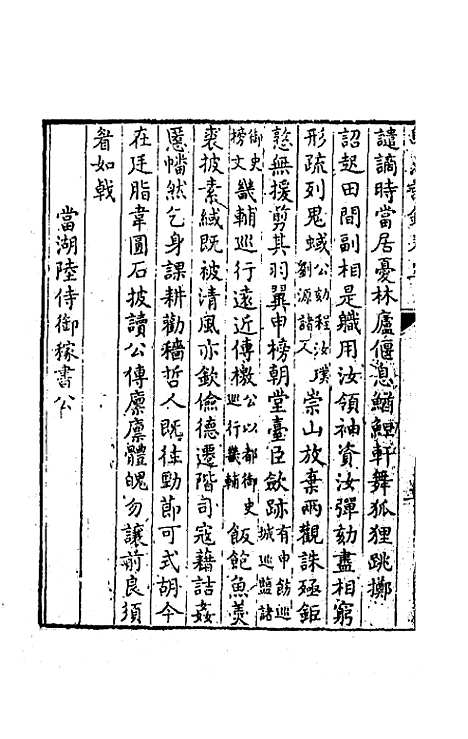 讉謫時當居憂林廬偃息鰌鯉軒舞狐狸跳擲
詔起田間副相是職用汝領袖資汝彈劾盡相窮
形疏列鬼蜮公劾程汝璞劉源諸人崇山放棄兩觀誅殛鉅
憝無援剪其羽翼申榜朝堂臺臣歛跡有申飭巡城巡鹽諸
御史榜文畿輔巡行遠近傳檄公以都御史巡行畿輔飯飽魚羹
裘披素絨既被清風亦欽儉德遷階司寇藉詰姦
慝幡然乞身課耕勸穡哲人既徃勁節可式胡今
在廷脂韋圓石披讀公傳廩廩體魄勿讓前良須
眷如戟
當湖陸侍御稼書公